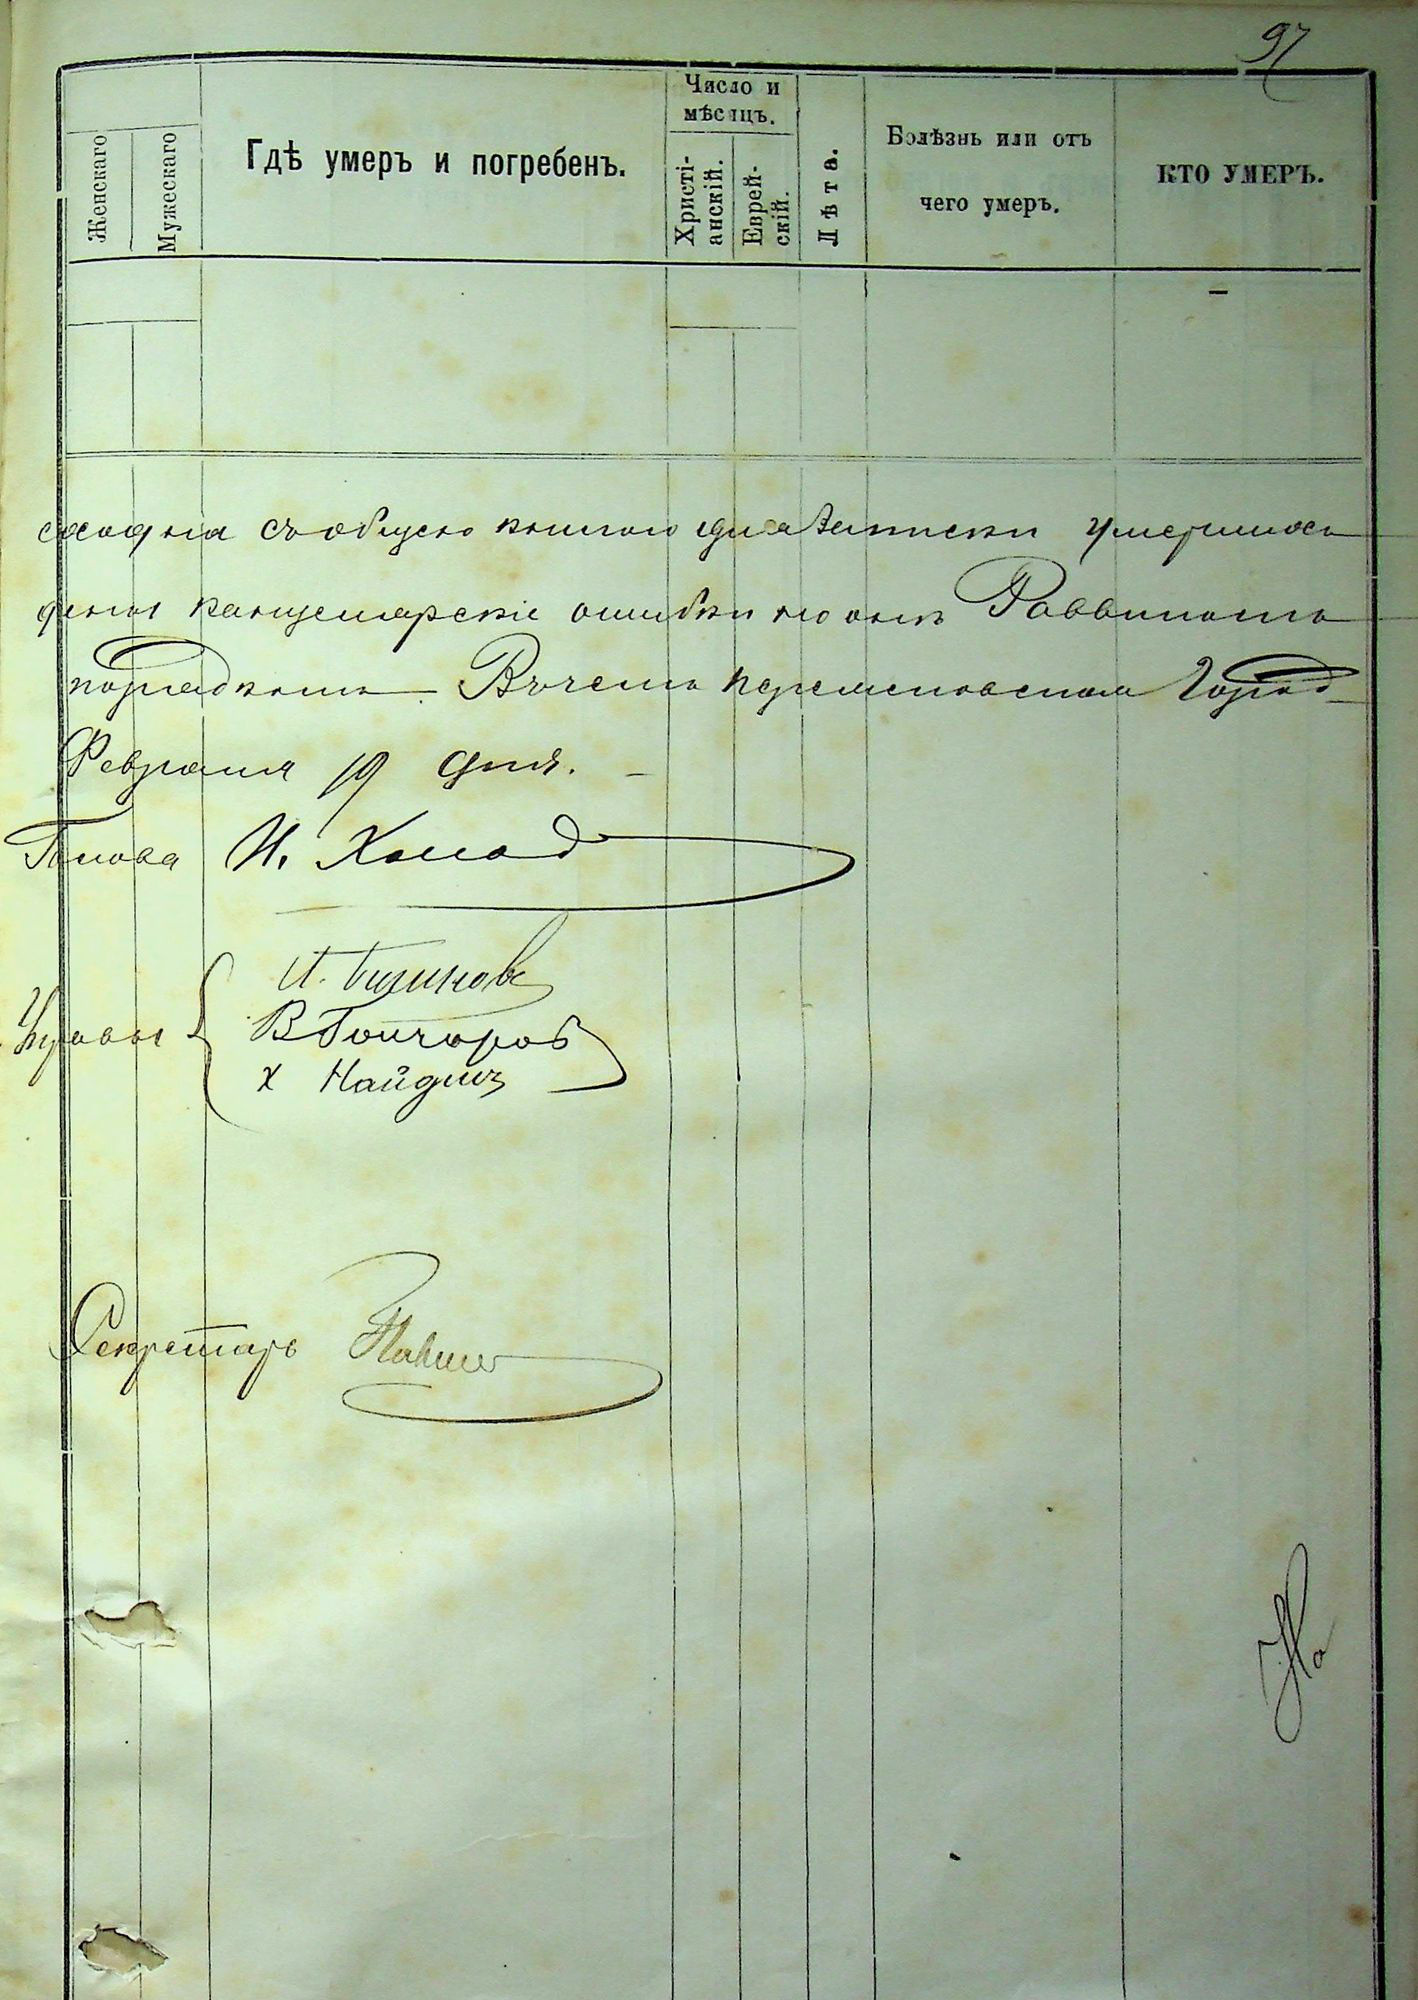 97
Женскаго
Мужескаго
Гдѣ умеръ и погребенъ.
Число и
мѣсяцъ.
Христі-
анскій.
Еврей-
скій.
Лѣта.
Болѣзнь или отъ
чего умеръ.
КТО УМЕРЪ.
сходна съ общею книгою для записки умершихъ
деныя канцелярскіе ошибки Раввиномъ
порядкомъ Въ чемъ Город
Февраля 19 дня.
Голова И.
Управы
В Гончаровъ
Х Найдичъ
Секретарь